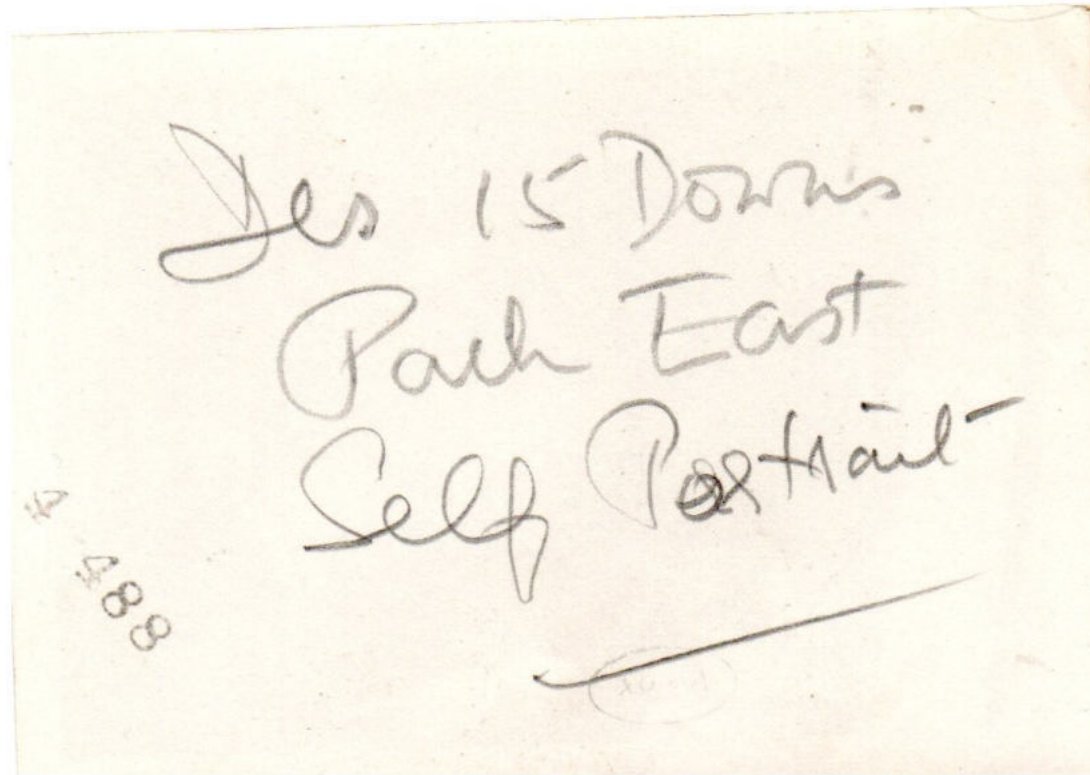 Des 15 Downs
Park East
Self Portrait
4 488